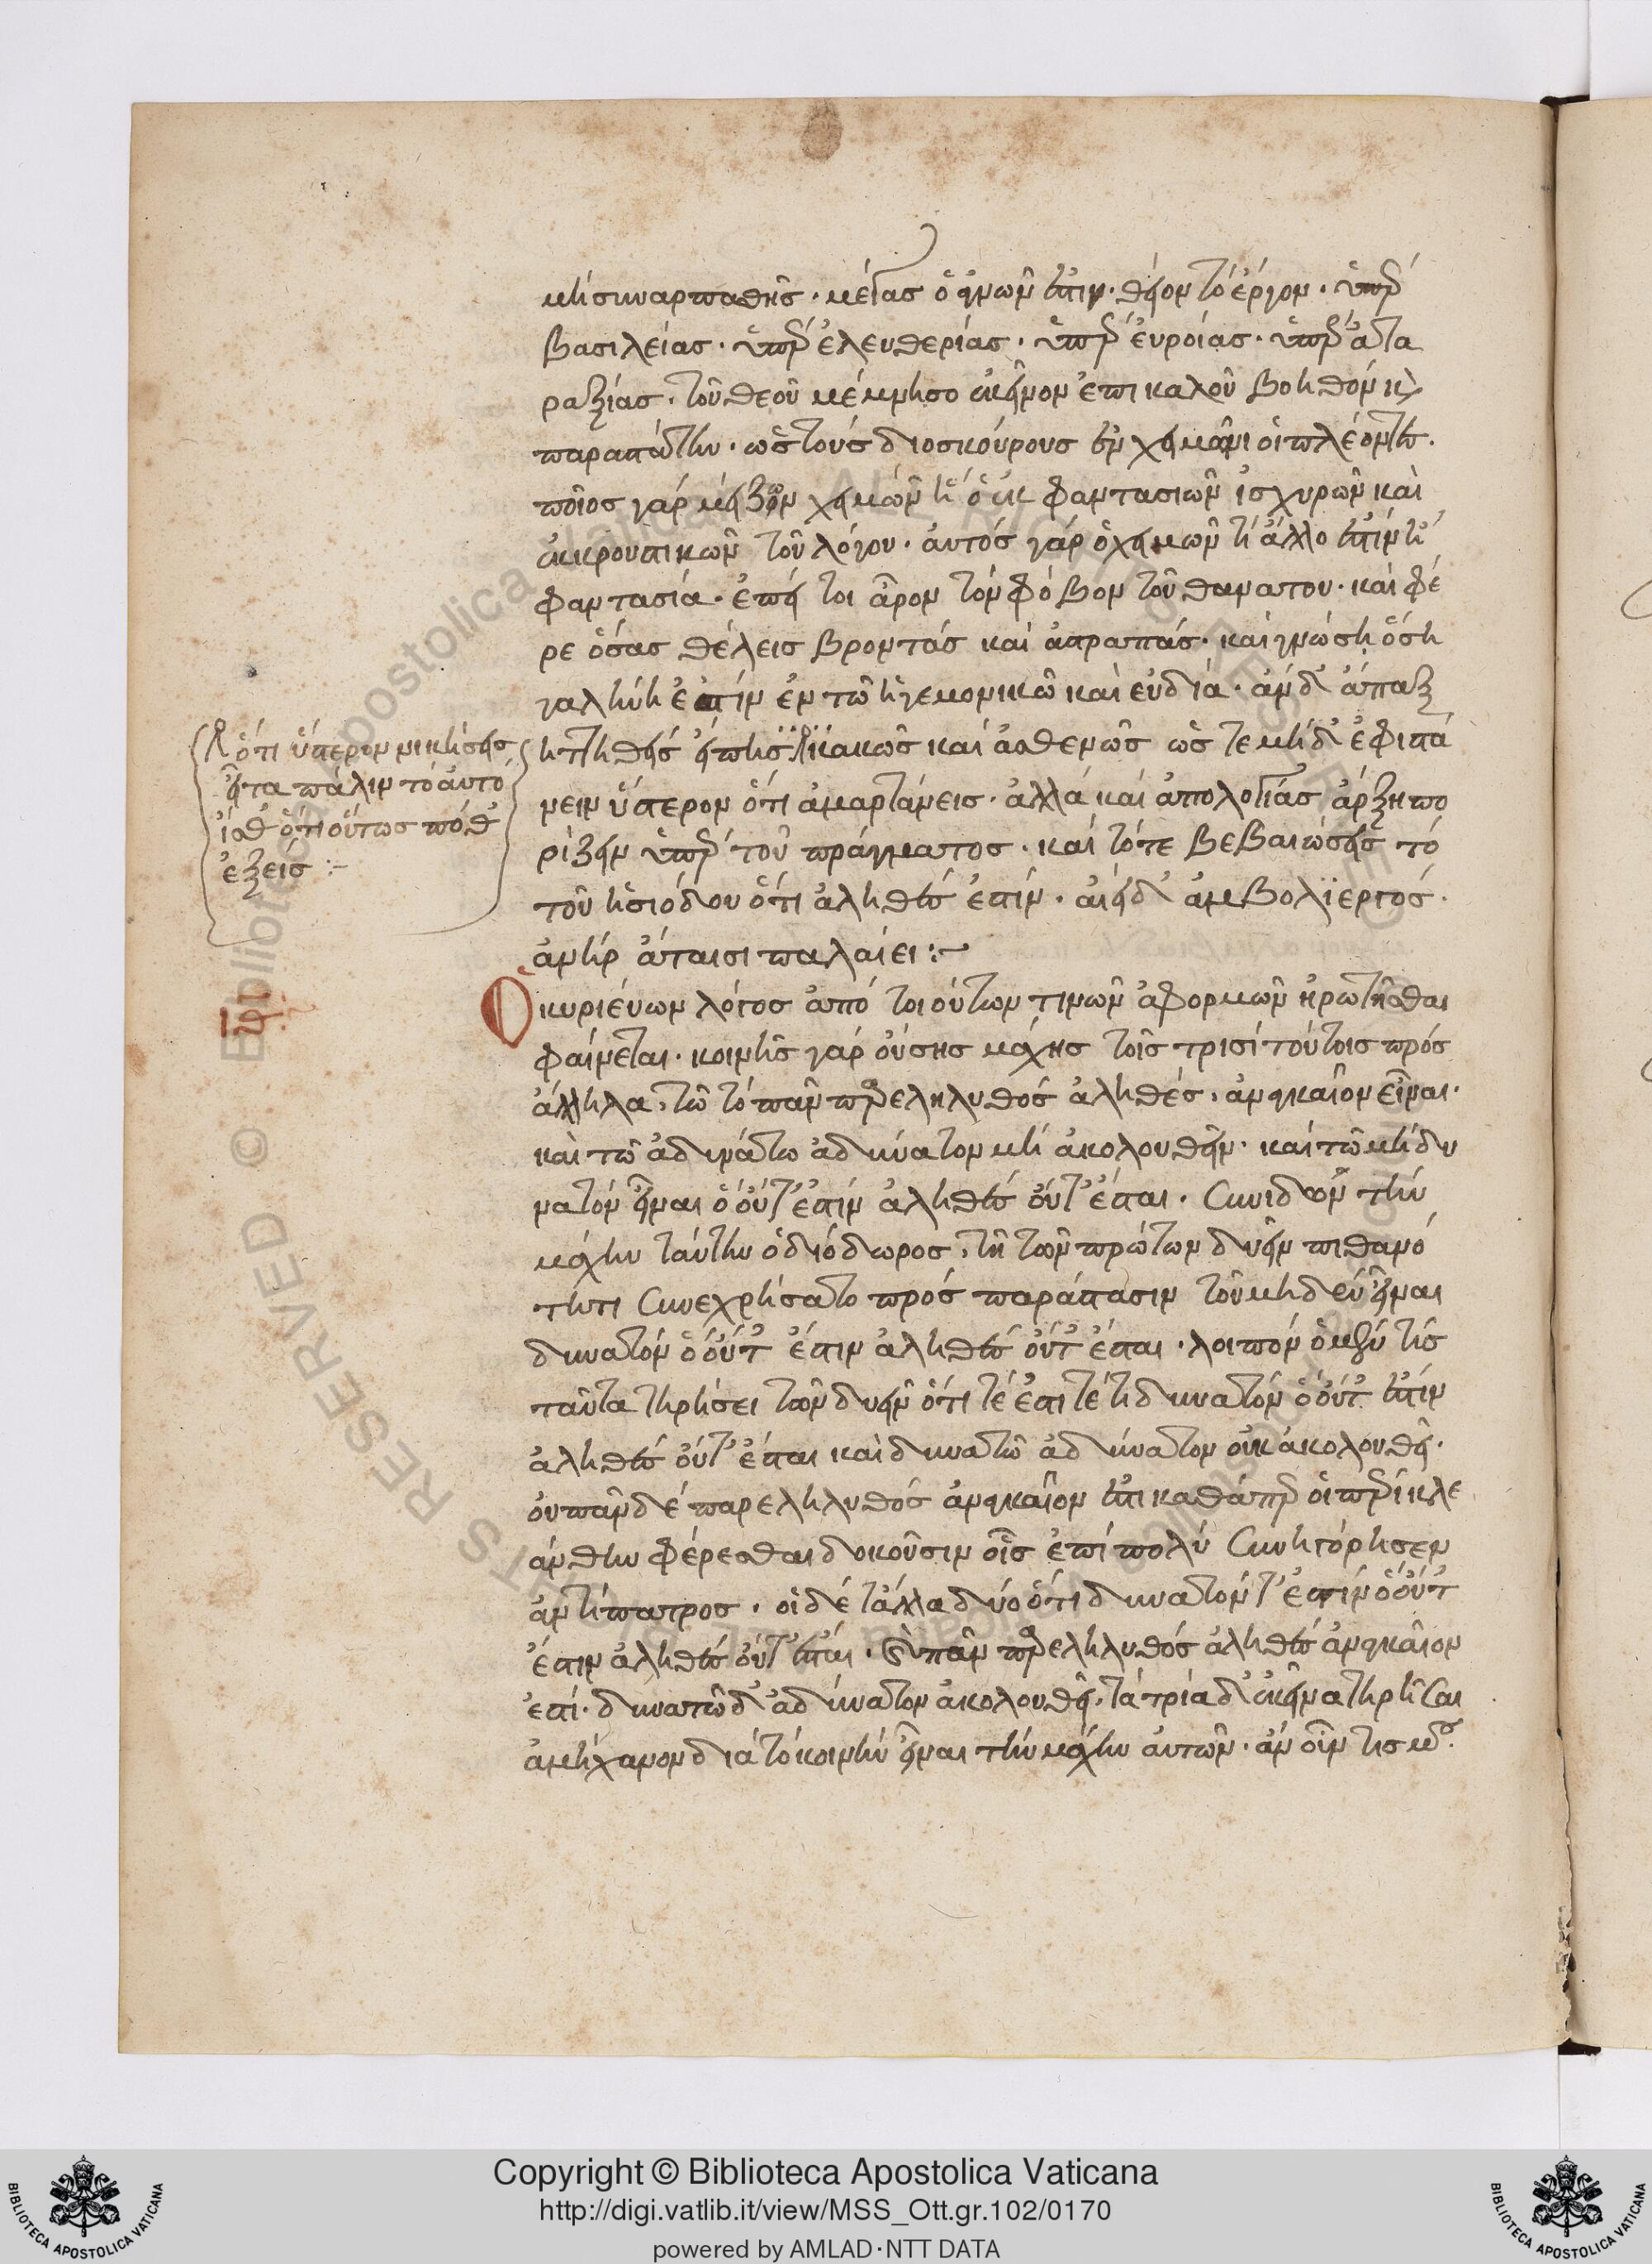 μὴ συναρπασθῆς· μέγας ὁ ἀγὼν ἐστιν· θεῖον τὸ ἔργον· ὑπὲρ
βασιλείας· ὑπὲρ ἐλευθερίας· ὑπὲρ εὐροίας· ὑπὲρ ἀτα
ραξίας· τοῦ θεοῦ μέμνησο ἐκεῖνον ἐπικαλοῦ βοηθὸν κ
παραστάτην· ὡς τοὺς διοσκούρους ἐν χειμῶνι οἱ πλέοντες·
ποῖος γὰρ μείζων χειμὼν ἢ ὁ ἐκ φαντασιῶν ἰσχυρῶν καὶ
ἐκκρουστικῶν τοῦ λόγου· αὐτὸς γὰρ ὁ χειμὼν τί ἄλλο ἐστὶν ἢ
φαντασία· ἐπεί τοι ἆρον τὸν φόβον τοῦ θανατου· καὶ φέ
ρε ὅσας θέλεις βροντὰς καὶ ἀστραπάς· καὶ γνώση ὅση
γαλήνη ἐστὶν ἐν τῶ ἡγεμονικῶ καὶ εὐδία· ἀν δ' ἅπαξ
ἡττηθεὶς εἴπης κακῶς καὶ ἀσθενῶς ὥς τε μὴ δ' ἐφιστά
νειν ὕστερον ὅτι ἁμαρτάνεις· ἀλλὰ καὶ ἀπολογίας ἄρξη πο
ρίζειν ὑπὲρ τοῦ πράγματος· καὶ τότε βεβαιώσεις τὸ
τοῦ ἡσιόδου ὅτι ἀληθές ἐστιν· αἰεὶ δ' ἀμβολϊεργὸς·
ἀνὴρ ἄταισι παλαίει :~
ὅτι ὕστερον νικήσεις
εἶτα πάλιν τὸ αὐτὸ
ἴσθ ὅτι οὕτως ποθ
ἕξεις :~
ιθ
Ὁ κυριεύων λόγος ἀπὸ τοιούτων τινῶν ἀφορμῶν ἠρωτῆσθαι
φαίνεται· κοινῆς γὰρ οὔσης μάχης τοῖς τρισὶ τούτοις πρὸς
ἄλληλα, τῶ τὸ πᾶν παρεληλυθὸς ἀληθὲς, ἀναγκαῖον εἶναι·
καὶ τῶ ἀδυνάτω ἀδύνατον μὴ ἀκολουθεῖν· καὶ τῶ μὴ δυ
νατὸν εἶναι ὃ οὔτ' ἐστὶν ἀληθὲς οὔτ' ἔσται. Συνιδὼν τὴν
μάχην ταύτην ὁ διόδωρος, τῆ τῶν πρώτων δυεῖν πιθανό
τητι Συνεχρήσατο πρὸς παράστασιν τοῦ μηδὲν εἶναι
δυνατὸν ὃ οὔτ ἔστιν ἀληθὲς οὔτ ἔσται. λοιπὸν ὁ μέν τις
ταῦτα τηρήσει τῶν δυεῖν ὅτι τὲ ἔστι τέ τι δυνατὸν ὃ οὔτ ἐστὶν
ἀληθὲς οὔτ' ἔσται καὶ δυνατῶ ἀδύνατον οὐκ ἀκολουθεῖ·
οὐ πᾶν δὲ παρεληλυθὸς ἀναγκαῖον ἐστι καθάπερ οἱ περὶ κλε
άνθην φέρεσθαι δοκοῦσιν οἷς ἐπὶ πολὺ Συνηγόρησεν
ἀντίπατρος. οἱ δὲ τἄλλα δύο ὅτι δυνατὸν τ' ἐστὶν ὃ οὔτ
ἔστιν ἀληθὲς οὔτ' ἔσται. Καὶ πᾶν παρεληλυθὸς ἀληθὲς ἀναγκαῖον
ἐστὶ. δυνατῶ δ' ἀδύνατον ἀκολουθεῖ, τὰ τρία δ' ἐκεῖνα τηρῆσαι
ἀμήχανον διὰ τὸ κοινὴν εἶναι τὴν μάχην αὐτῶν. ἂν οὖν τις μου
Copyright © Biblioteca Apostolica Vaticana
http://digi.vatlib.it/view/MSS_Ott.gr.102/0170
powered by AMLAD·NTT DATA